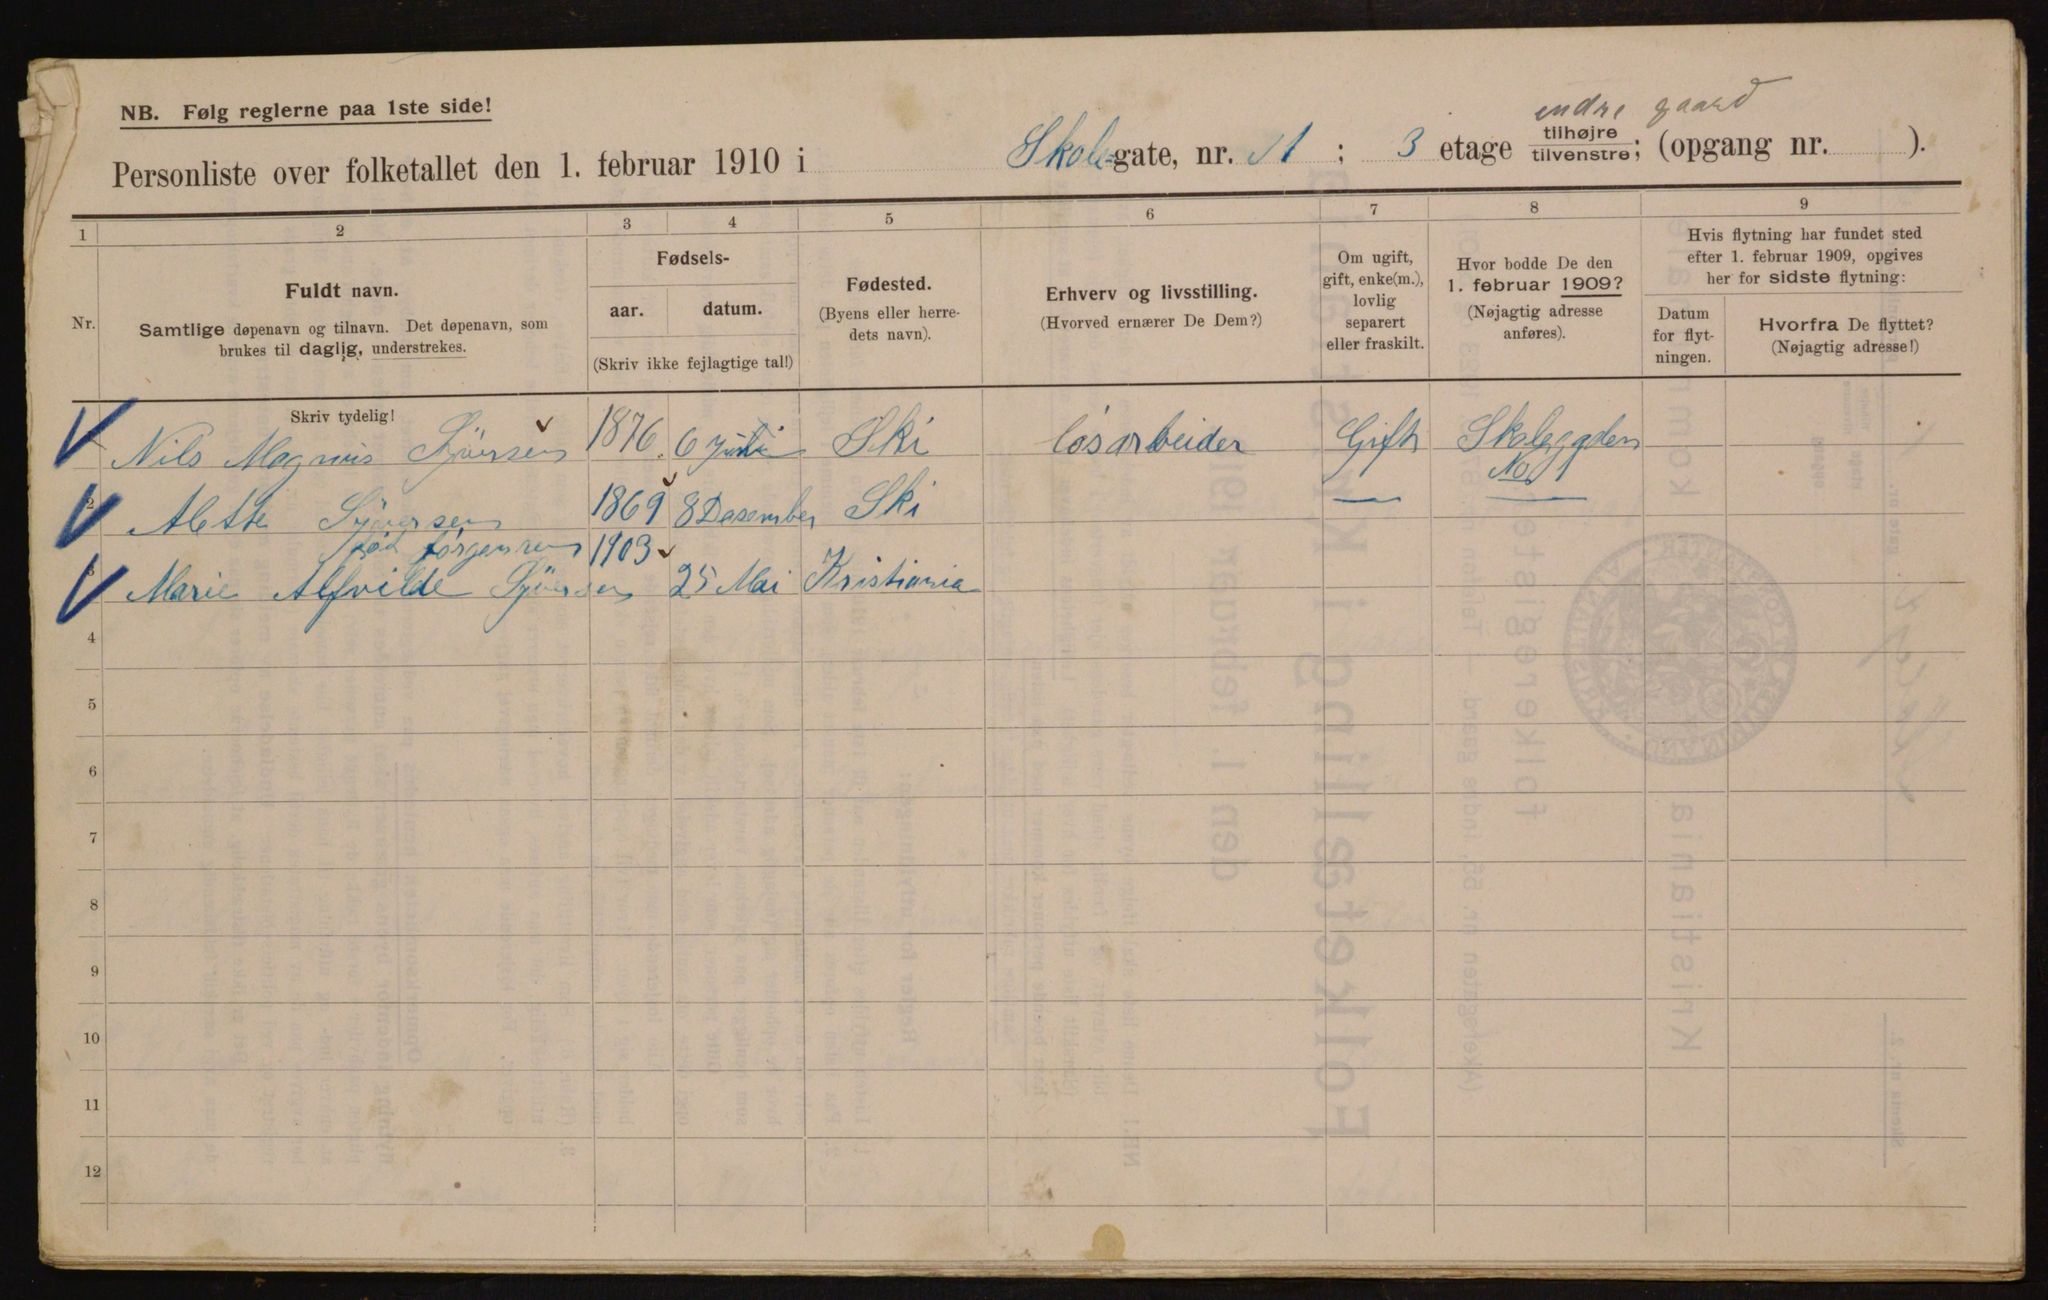 endre gaard
NB. Følg reglerne paa 1ste side!
Personliste over folketallet den 1. februar 1910 i Skole-gate, nr. 11 ; 3 etage tilhøjre/tilvenstre; (opgang nr. ).
1 2 3 4 5 6 7 8 9
Nr.
Fuldt navn.
Samtlige døpenavn og tilnavn. Det døpenavn, som
brukes til daglig, understrekes.
Fødsels-
aar. datum.
(Skriv ikke fejlagtige tal!)
Fødested.
(Byens eller herre-
dets navn).
Erhverv og livsstilling.
(Hvorved ernærer De Dem?)
Om ugift,
gift, enke(m.),
lovlig
separert
eller fraskilt.
Hvor bodde De den
1. februar 1909?
(Nøjagtig adresse
anføres).
Hvis flytning har fundet sted
efter 1. februar 1909, opgives
her for sidste flytning:
Datum
for flyt-
ningen.
Hvorfra De flyttet?
(Nøjagtig adresse!)
Skriv tydelig!
Nils Magnus Syversen 1876 6 Ski løsarbeider Gift Skolegaden
No 1
2 Alette Syversen 1869 8 Desember Ski
fød Jørgensen 1903
3 Marie Alfvilde Syversen 25 Mai Kristiania
4
5
6
7
8
9
10
11
12